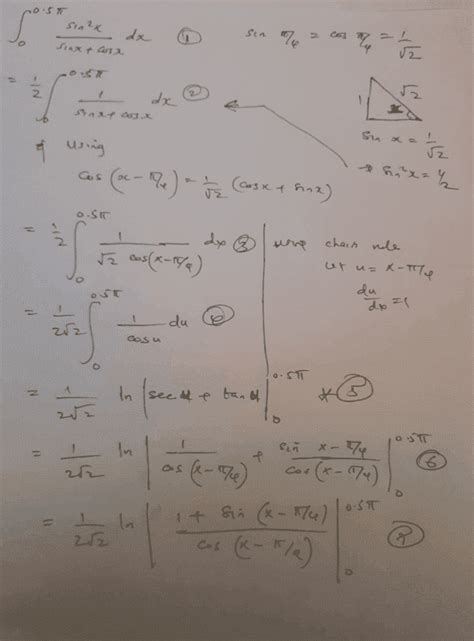 ∫₀^0.5π sin²x / (sinx + cosx) dx ① sin π/4 = cos π/4 = 1/√2
= 1/2 ∫₀^0.5π 1 / (sinx + cosx) dx ② 1 √2 x
sin x = 1/√2
using → sin²x = 1/2
cos (x - π/4) = 1/√2 (cosx + sinx)
= 1/2 ∫₀^0.5π 1 / (√2 cos(x-π/4)) dx ③ using chain rule
let u = x - π/4
du/dx = 1
= 1/2√2 ∫₀^0.5π 1/cosu du
= 1/2√2 ln |sec u + tan u| ₀^0.5π ⑤
= 1/2√2 ln | 1/cos (x - π/4) + sin x - π/4 / cos (x - π/4) | ₀^0.5π ⑥
= 1/2√2 ln | 1 + sin (x - π/4) / cos (x - π/4) | ₀^0.5π